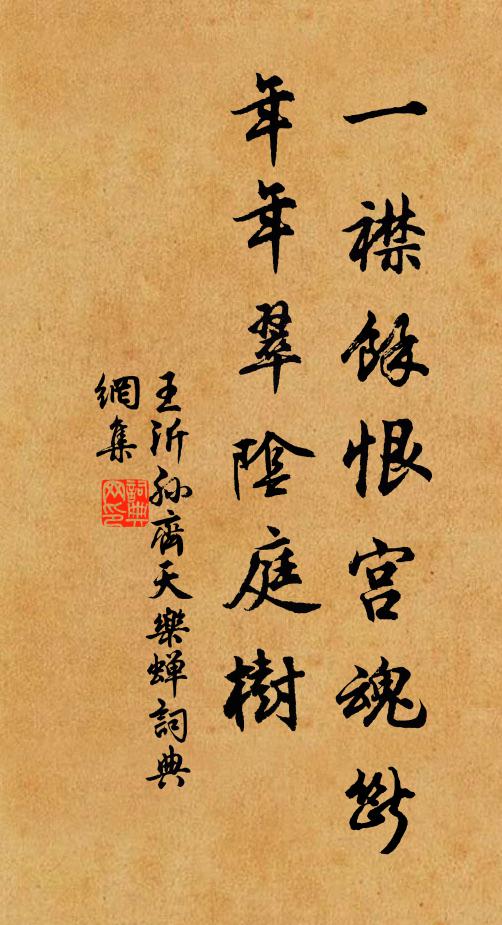 一襟餘恨宮魂斷
年年翠陰庭樹
王沂孫齊天樂蟬詞典
網集
詞典網印